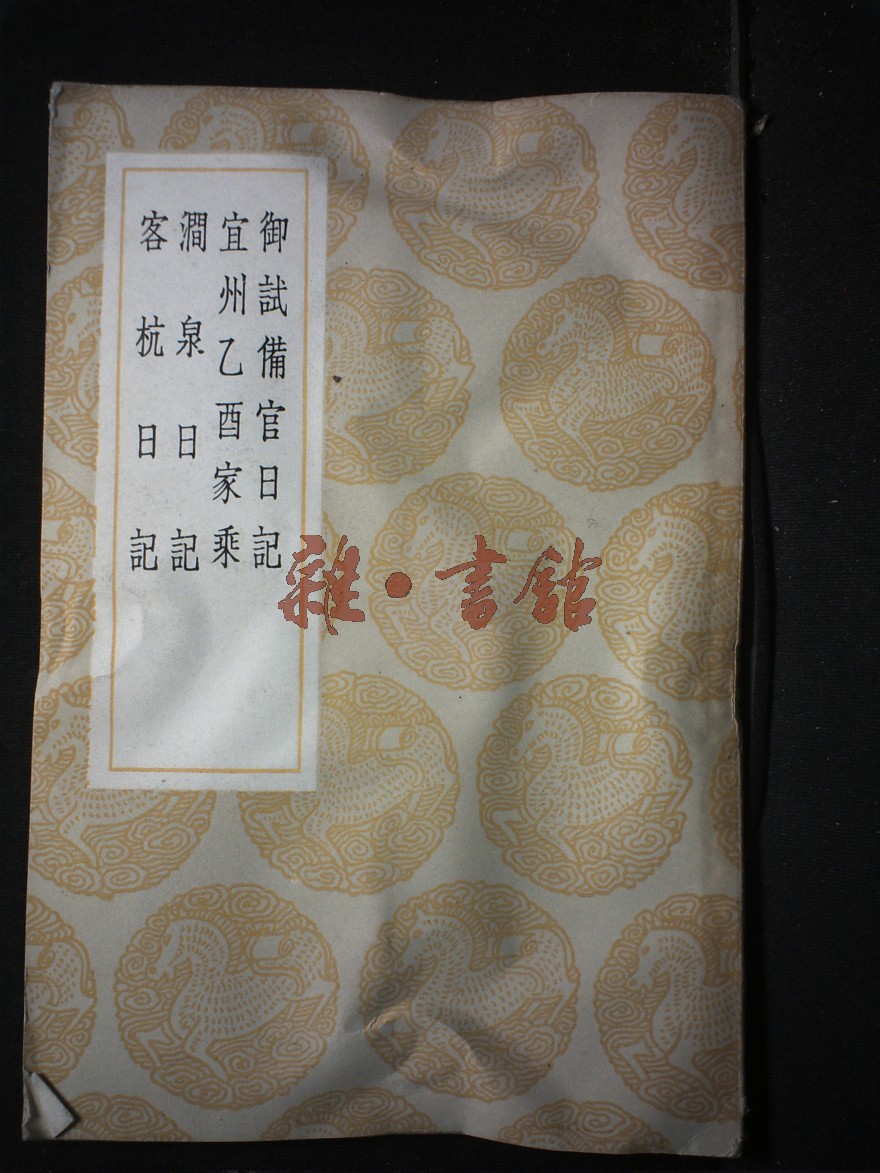 御試備官日記
宜州乙酉家乘
澗泉日記
客杭日記
雜·書館